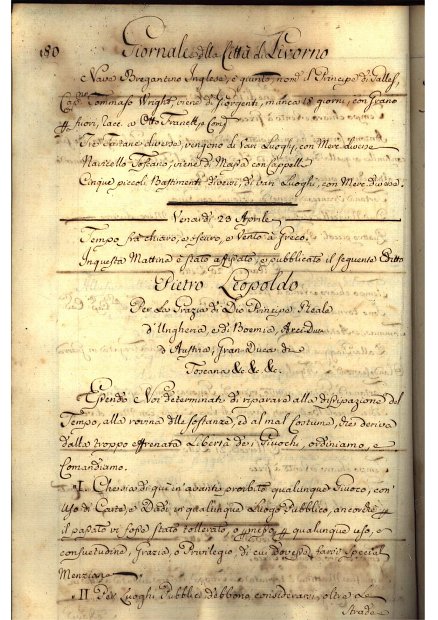 180 Giornale della Città di Livorno
Nave Bregantino Inglese, e quinto, nom.º il Principe di Galles,
Cap.ne Tommaso Wright, viene di Giorgenti, manca 18 giorni, con Grano
fuori, racc. a Otto Franck, e Comp.
Tre Tartane diverse, vengono di vari Luoghi, con Merc. diverse
Navicello Toscano, viene di Massa con Cappelli
Cinque piccoli Bastimenti diversi, di vari Luoghi, con Merc. diverse.
Venerdì 23 Aprile
Tempo frà chiaro, e oscuro, e Vento à Greco.
In questa Mattina è stato affissato, e pubblicato il seguente Editto
Pietro Leopoldo
Per La Grazia di Dio Principe Reale
d'Ungheria, e di Boemia, Arciduca
d'Austria, Gran-Duca di
Toscana &c. &c. &c.
Essendo Noi determinati di riparare alla dissipazione del
Tempo, alla rovina delle sostanze, ed al mal Costume, che deriva
dalla troppo effrenata Libertà de i Giuochi, ordiniamo, e
Comandiamo.
I. Che sia di qui in avanti proibito qualunque Giuoco, con
Uso di Carte, e Dadi in qualunque Luogo Pubblico, ancorchè
il passato vi fosse stato tollerato, o qualunque uso, e
consuetudine, Grazia, o Privilegio, di cui dovesse farsi special
Menzione
II Per Luoghi Pubblici debbono considerarsi, oltre Le
Strade